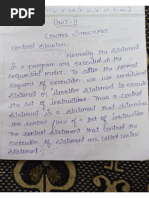 Unit-II
Control Structures
Control structure
Normally the statement
in a program are executed in the
sequential order. To alter the normal
sequence of execution, we use conditional
statement or iterative statement to execute
the set of instructions. Thus a control
statement is a statement that determines
the control flow of a set of instructions
the control statement that control the
execution of statement are called control
statement.